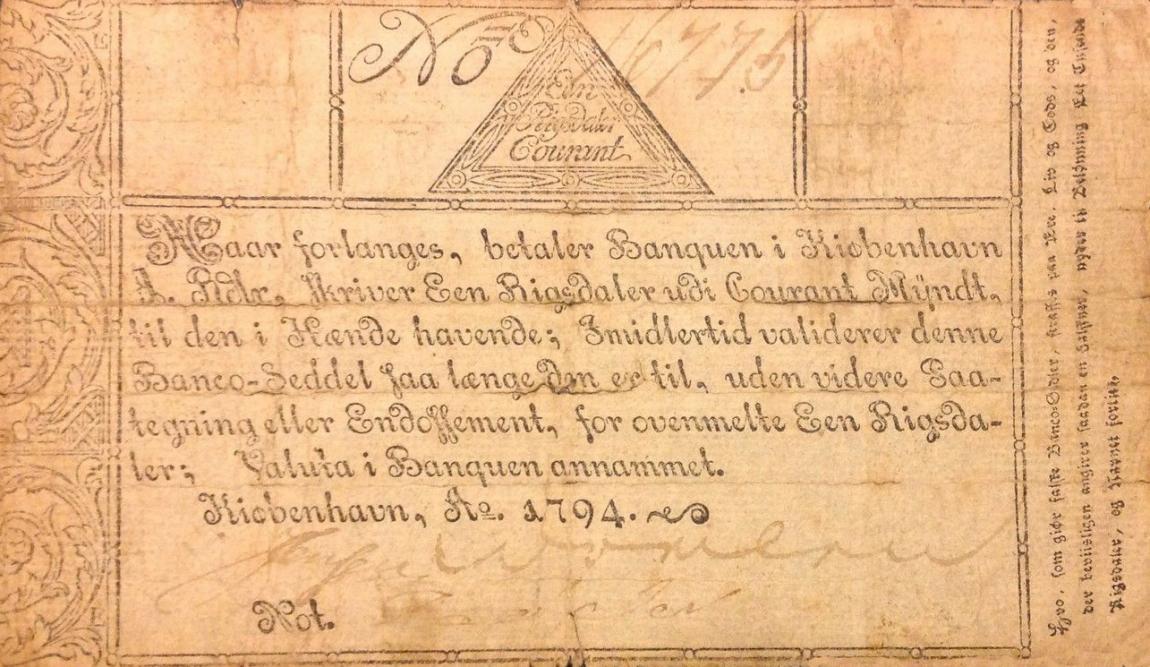 No 16775
Een
Rigsdaler
Courant
Naar forlanges, betaler Banquen i Kiøbenhavn
1. Rdlr, skriver Een Rigsdaler udi Courant Myndt,
til den i Hænde havende; Imidlertid validerer denne
Banco-Seddel saa længe den er til, uden videre Paa-
tegning eller Endossement, for ovenmelte Een Rigsda-
ler; Valuta i Banquen annammet.
Kiøbenhavn, Ao. 1794.
Not.
Hvo, som giør falske Banco-Sedler, straffes paa Ære, Liv og Gods, og den,
der beviisligen angiver saadan en Falskner, nyder til Belønning Eet Tusinde
Rigsdaler, og Navnet fortiet.